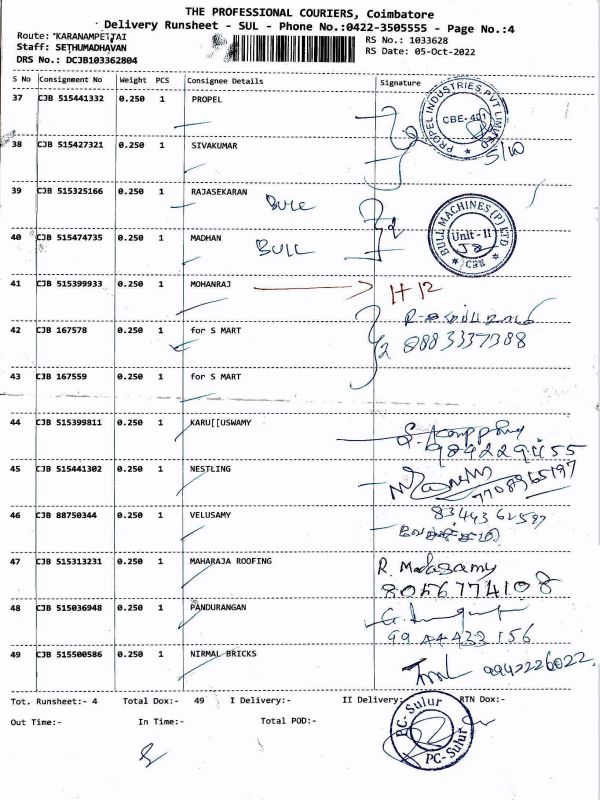 THE PROFESSIONAL COURIERS, Coimbatore
Delivery Runsheet - SUL - Phone No.:0422-3505555 - Page No.:4
Route: KARANAMPETTAI
Staff: SETHUMADHAVAN
DRS No.: DCJB103362804
RS No.: 1033628
RS Date: 05-Oct-2022
S No Consignment No Weight PCS Consignee Details Signature
37 CJB 515441332 0.250 1 PROPEL
PROPEL INDUSTRIES PVT LIMITED
CBE-401
5/10
38 CJB 515427321 0.250 1 SIVAKUMAR
39 CJB 515325166 0.250 1 RAJASEKARAN
BULL
BULL MACHINES (P) LTD
Unit - II
CBE
40 CJB 515474735 0.250 1 MADHAN
BULL
41 CJB 515399933 0.250 1 MOHANRAJ
H 12
42 CJB 167578 0.250 1 for S MART
8883337388
43 CJB 167559 0.250 1 for S MART
44 CJB 515399811 0.250 1 KARU[[USWAMY
9842291155
45 CJB 515441302 0.250 1 NESTLING
7708965197
46 CJB 88750344 0.250 1 VELUSAMY
8344362597
47 CJB 515313231 0.250 1 MAHARAJA ROOFING
R. Madasamy
8056774108
48 CJB 515036948 0.250 1 PANDURANGAN
9944433156
49 CJB 515500586 0.250 1 NIRMAL BRICKS
9942226022
Tot. Runsheet:- 4 Total Dox:- 49 I Delivery:- II Delivery:- RTN Dox:-
Out Time:- In Time:- Total POD:-
PC-Sulur
PC-Sulur